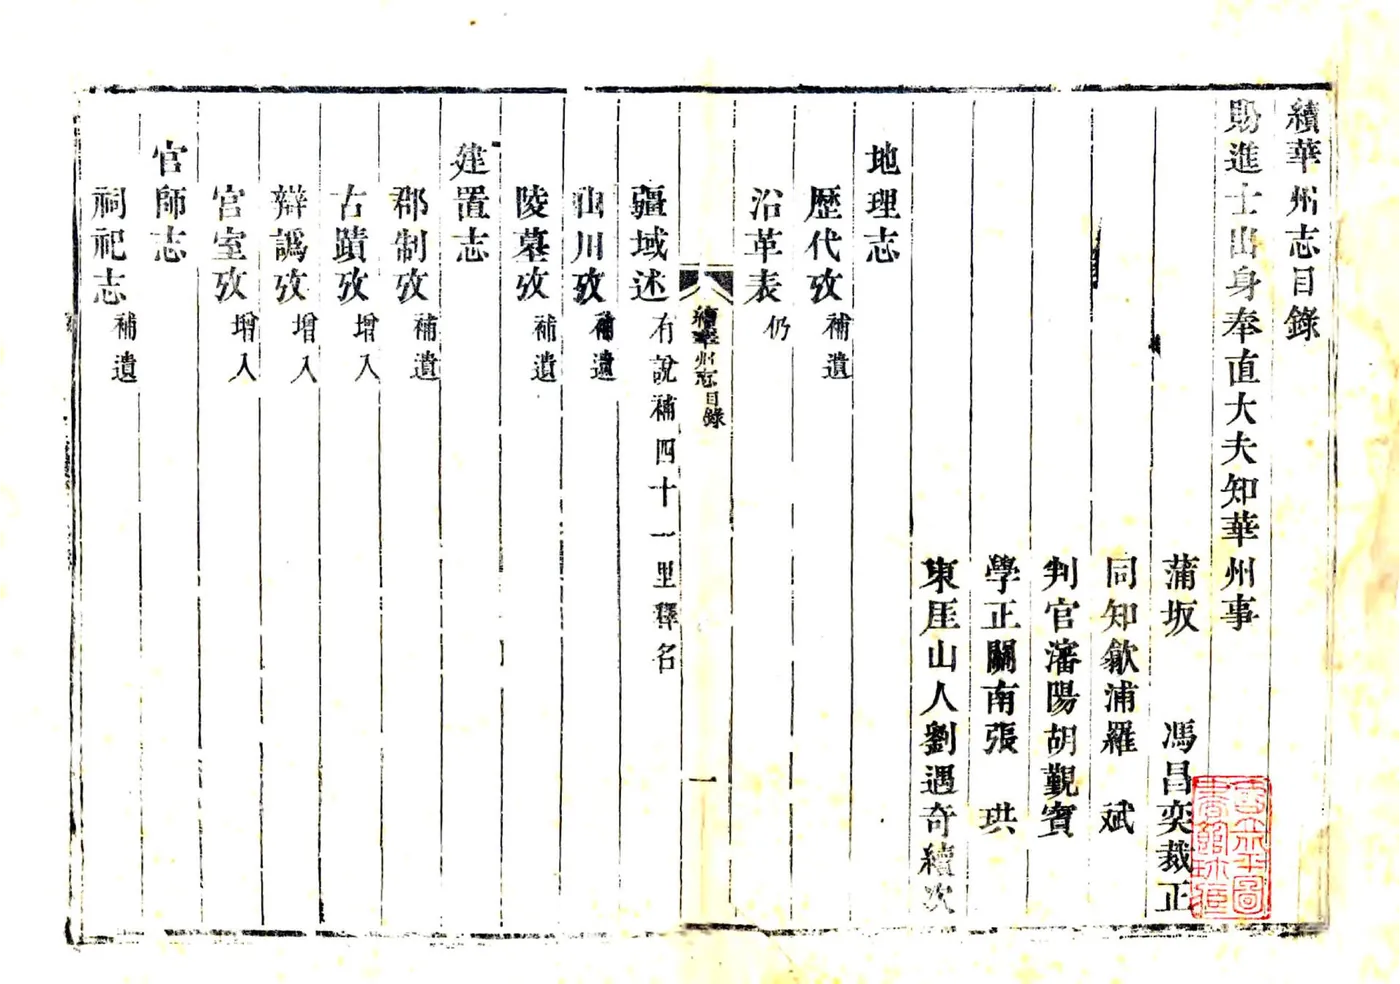 續華州志目錄
賜進士出身奉直大夫知華州事
蒲坂 馮昌奕裁正
同知歙浦羅 斌
判官瀋陽胡覲賓
學正關南張 珙
東厓山人劉遇奇續次
地理志
歷代攷補遺
沿革表仍
續華州志目錄
一
疆域述有說補四十一里釋名
山川攷補遺
陵墓攷補遺
建置志
郡制攷補遺
古蹟攷增入
辯譌攷增入
官室攷增入
官師志
祠祀志補遺